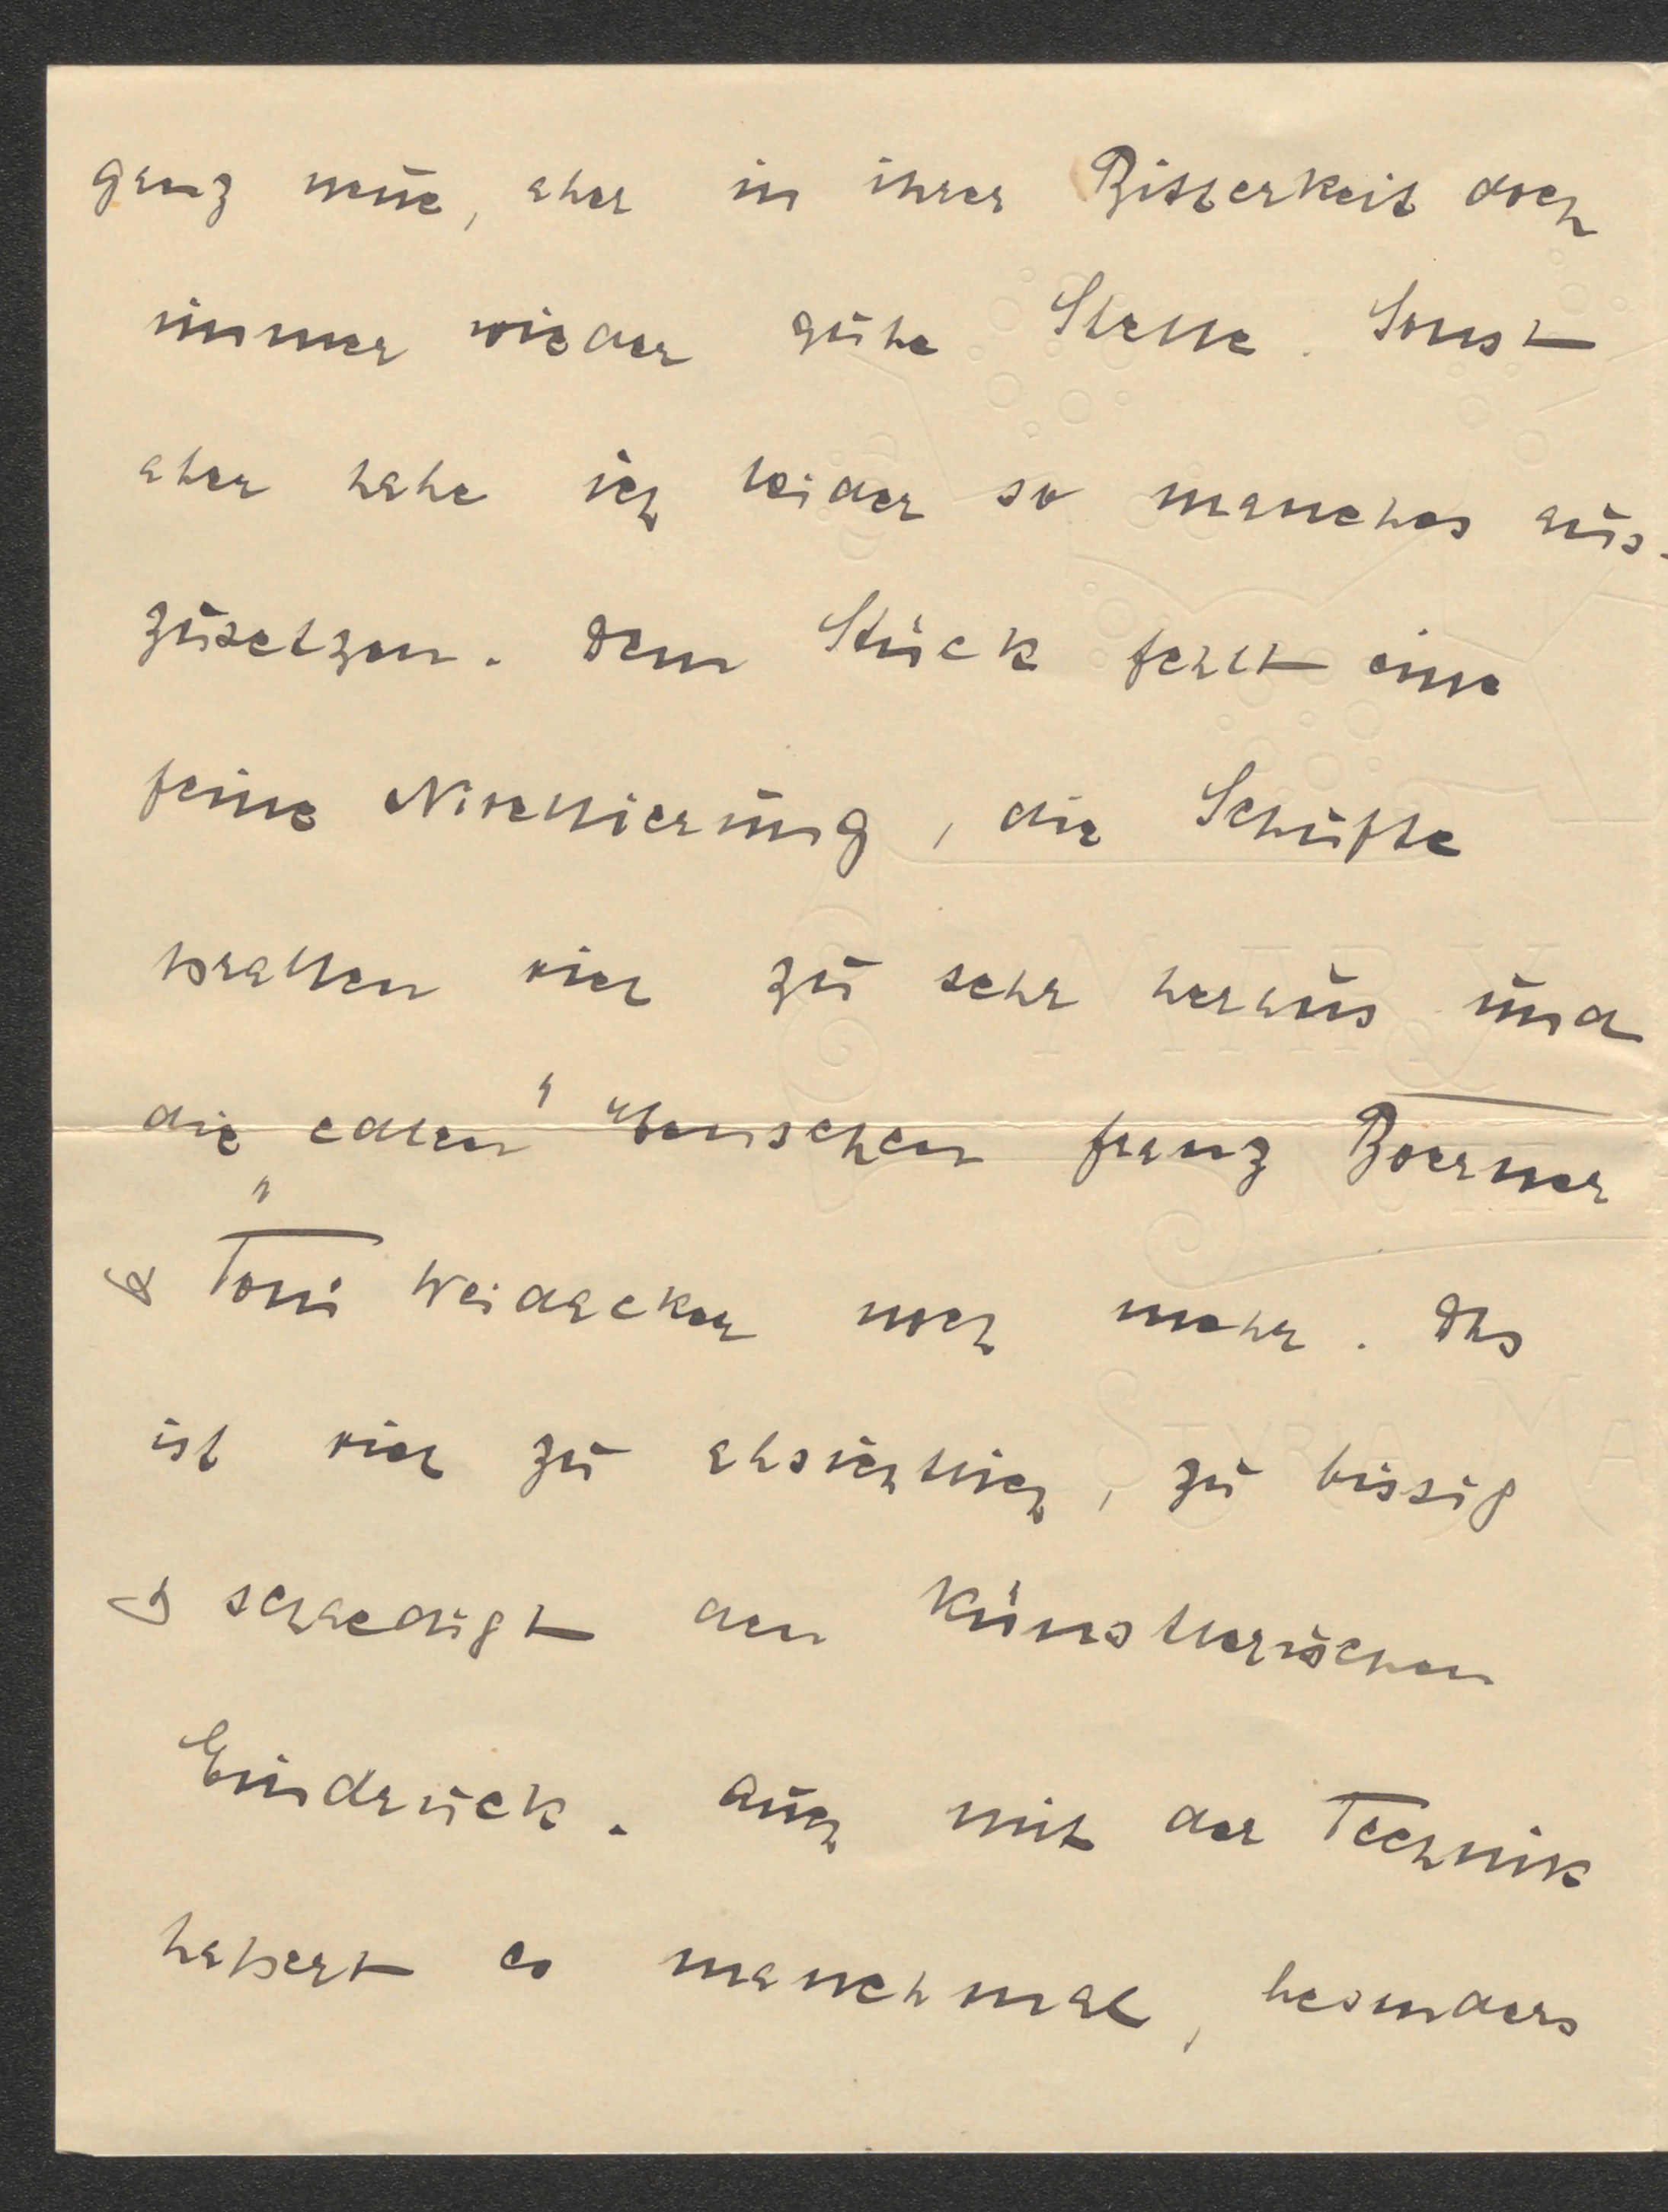 ganz neue, aber in ihrer Bitterkeit doch
immer wieder gute Stelle. Sonst
aber habe ich leider so manches aus-
zusetzen. Dem Stück fehlt eine
feine Nivellierung, die Schufte
prallen viel zu sehr heraus und
die „edlen“ Menschen Franz Boerner
& Toni Weidacker noch mehr. Das
ist viel zu absichtlich, zu bissig
& schaedigt den künstlerischen
Eindruck. Auch mit der Technik
hapert es manchmal, besonders
STYRIA